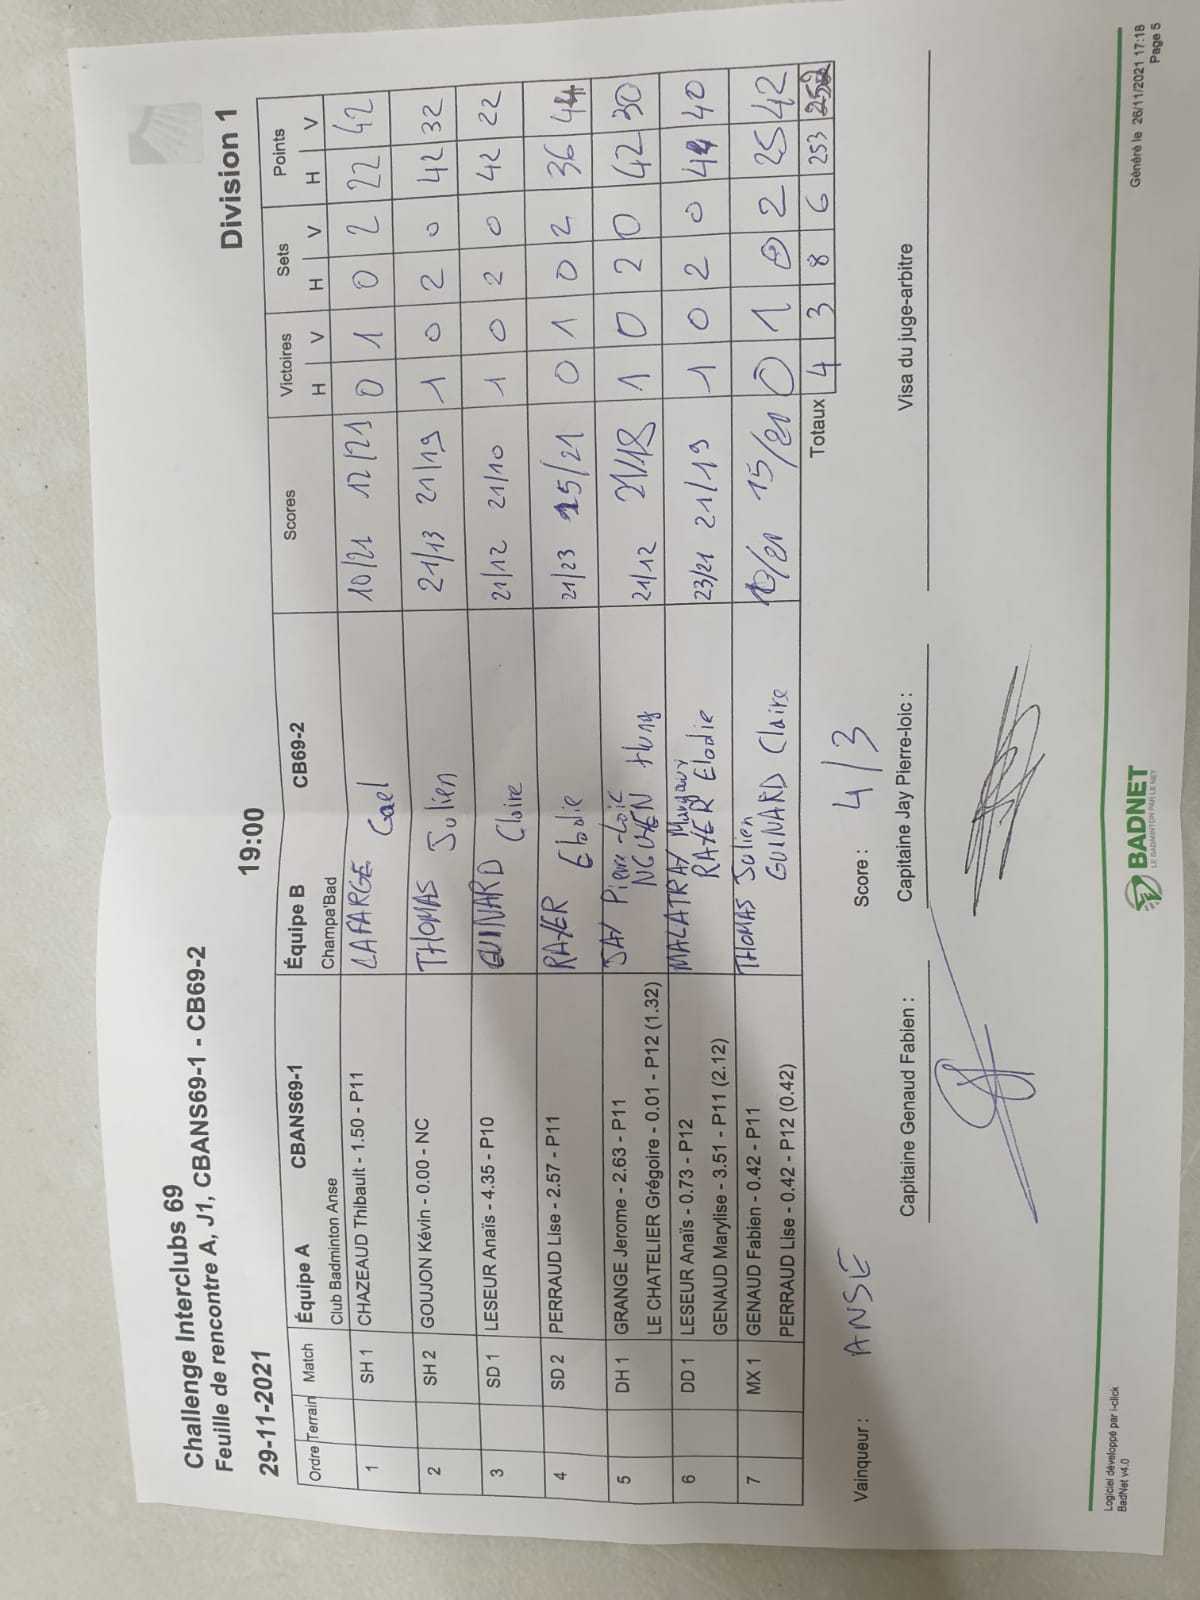 Challenge Interclubs 69
Feuille de rencontre A, J1, CBANS69-1 - CB69-2
29-11-2021 19:00 Division 1
Ordre Terrain Match Équipe A CBANS69-1 Équipe B CB69-2 Scores Victoires Sets Points
Club Badminton Anse Champa'Bad H V H V H V
1 SH 1 CHAZEAUD Thibault - 1.50 - P11 LAFARGE Gael 10/21 12/21 0 1 0 2 22 42
2 SH 2 GOUJON Kévin - 0.00 - NC THOMAS Julien 21/13 21/19 1 0 2 0 42 32
3 SD 1 LESEUR Anaïs - 4.35 - P10 GUINARD Claire 21/12 21/10 1 0 2 0 42 22
4 SD 2 PERRAUD Lise - 2.57 - P11 RAYER Elodie 21/23 15/21 0 1 0 2 36 44
5 DH 1 GRANGE Jerome - 2.63 - P11 JAY Pierre-Loïc 21/12 21/18 1 0 2 0 42 30
LE CHATELIER Grégoire - 0.01 - P12 (1.32) NGUYEN Hung
6 DD 1 LESEUR Anaïs - 0.73 - P12 MALATRAY Margaux 23/21 21/19 1 0 2 0 44 40
GENAUD Marylise - 3.51 - P11 (2.12) RAYER Elodie
7 MX 1 GENAUD Fabien - 0.42 - P11 THOMAS Julien 10/21 15/21 0 1 0 2 25 42
PERRAUD Lise - 0.42 - P12 (0.42) GUINARD Claire
Totaux 4 3 8 6 253 252
Vainqueur : ANSE Score : 4/3
Capitaine Genaud Fabien : Capitaine Jay Pierre-loic : Visa du juge-arbitre
Logiciel développé par i-click
BadNet v4.0
BADNET
LE BADMINTON PAR LE NET
Généré le 26/11/2021 17:18
Page 5